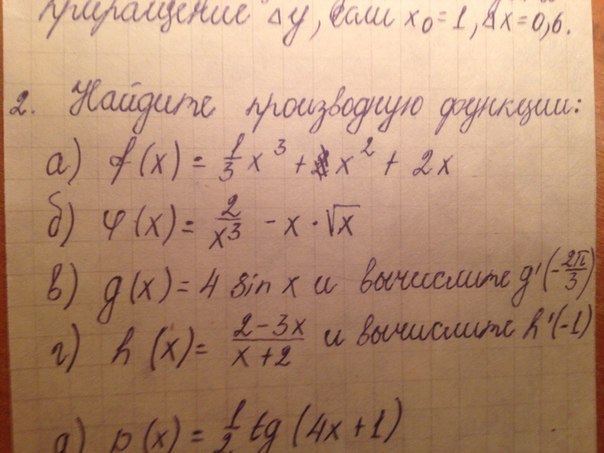 приращение Δy, если x₀ = 1, Δx = 0,6.
2. Найдите производную функции:
а) f(x) = 1/3 x³ + x² + 2x
б) φ(x) = 2/x³ - x · √x
в) g(x) = 4 sin x и вычислите g'(-2π/3)
г) h(x) = (2-3x)/(x+2) и вычислите h'(-1)
д) p(x) = 1/2 tg(4x+1)